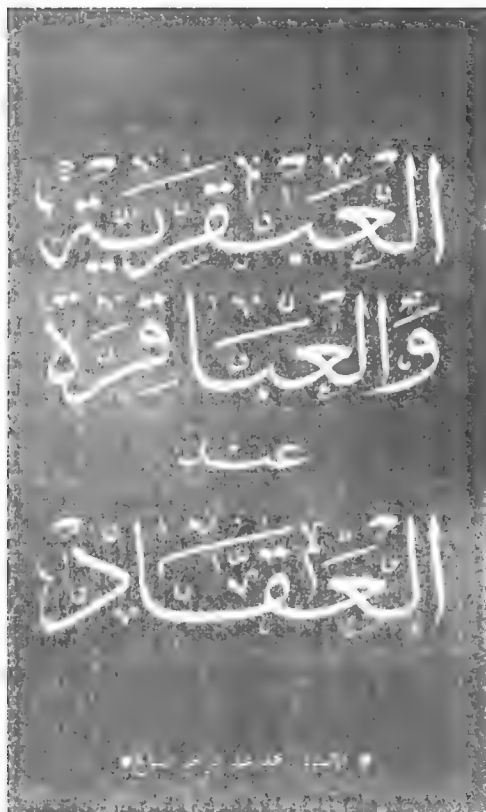 العبقرية
والعباقرة
عند
العقاد